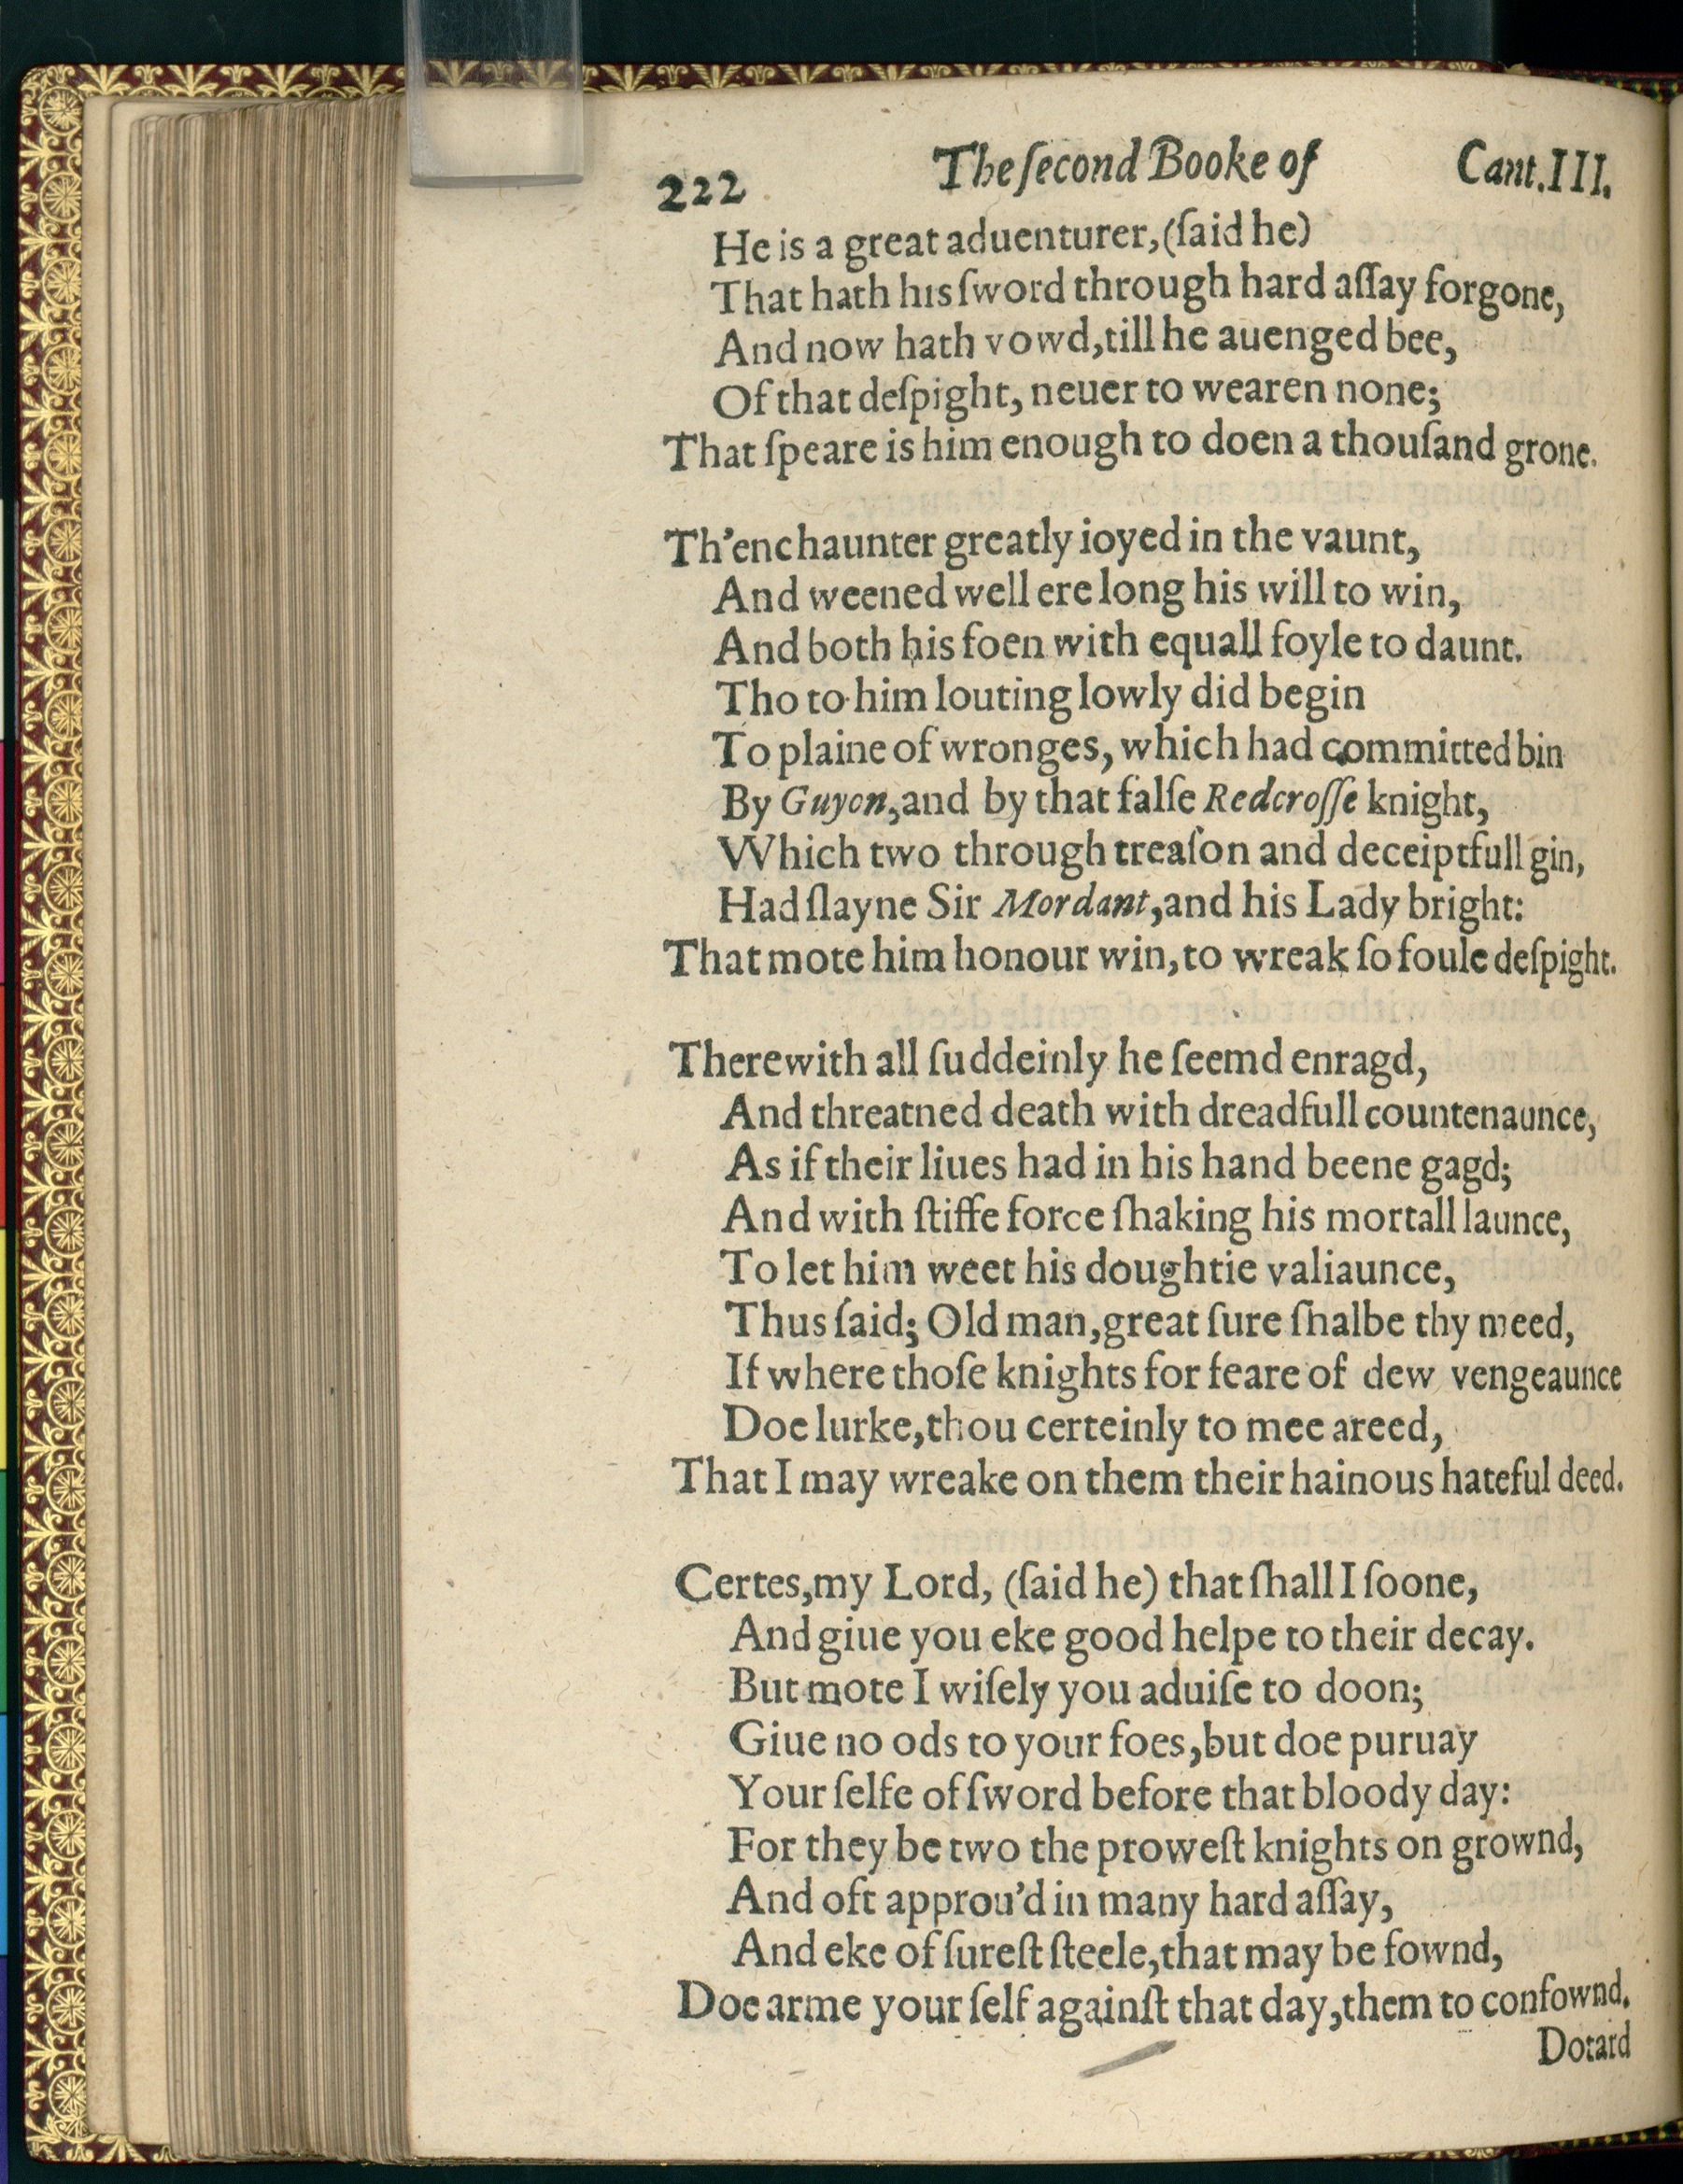 222 The ſecond Booke of Cant.III.
He is a great aduenturer,(ſaid he)
That hath his ſword through hard aſſay forgone,
And now hath vowd,till he auenged bee,
Of that deſpight, neuer to wearen none;
That ſpeare is him enough to doen a thouſand grone.
Th'enchaunter greatly ioyed in the vaunt,
And weened well ere long his will to win,
And both his foen with equall foyle to daunt.
Tho to him louting lowly did begin
To plaine of wronges, which had committed bin
By Guyon,and by that falſe Redcroſſe knight,
Which two through treaſon and deceiptfull gin,
Had ſlayne Sir Mordant,and his Lady bright:
That mote him honour win,to wreak ſo foule deſpight.
Therewith all ſuddeinly he ſeemd enragd,
And threatned death with dreadfull countenaunce,
As if their liues had in his hand beene gagd;
And with ſtiffe force ſhaking his mortall launce,
To let him weet his doughtie valiaunce,
Thus ſaid; Old man,great ſure ſhalbe thy meed,
If where thoſe knights for feare of dew vengeaunce
Doe lurke,thou certeinly to mee areed,
That I may wreake on them their hainous hateful deed.
Certes,my Lord, (ſaid he) that ſhall I ſoone,
And giue you eke good helpe to their decay.
But mote I wiſely you aduiſe to doon;
Giue no ods to your foes,but doe puruay
Your ſelfe of ſword before that bloody day:
For they be two the proweſt knights on grownd,
And oft approu'd in many hard aſſay,
And eke of ſureſt ſteele,that may be fownd,
Doe arme your ſelf againſt that day,them to confownd.
Dotard